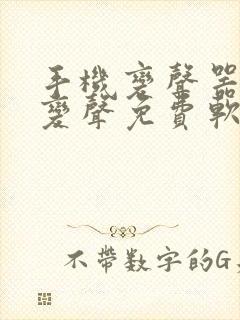 手機變聲器
變聲免費軟
不帶数字的G